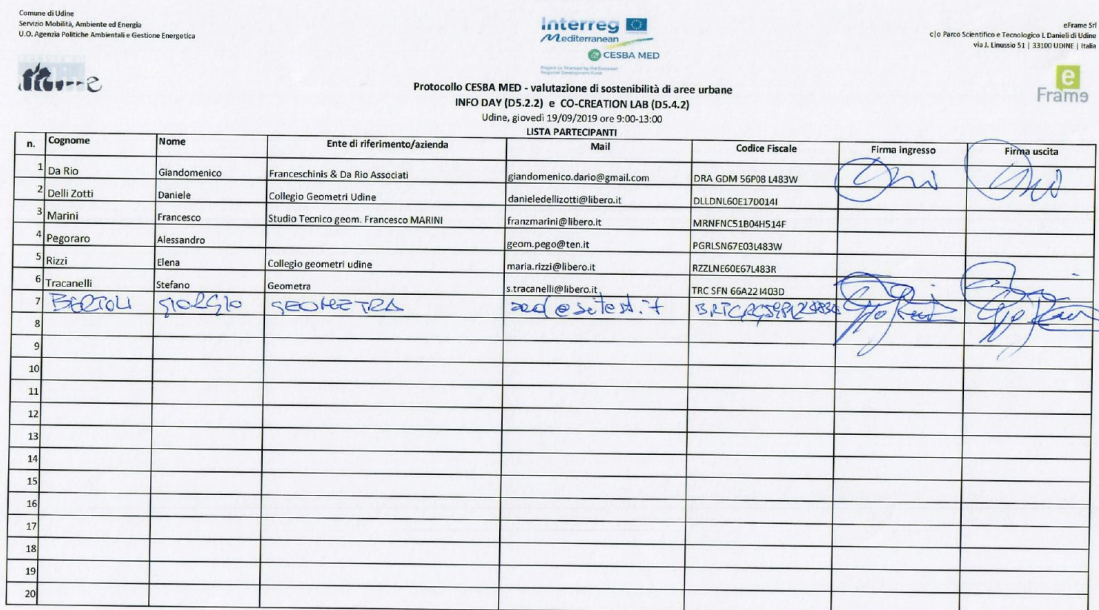 Comune di Udine
Servizio Mobilità, Ambiente ed Energia
U.O. Agenzia Politiche Ambientali e Gestione Energetica
Interreg
Mediterranean
CESBA MED
Project co-financed by the European
Regional Development Fund
eFrame Srl
c|o Parco Scientifico e Tecnologico L Danieli di Udine
via J. Linussio 51 | 33100 UDINE | Italia
e
Frame
Protocollo CESBA MED - valutazione di sostenibilità di aree urbane
INFO DAY (D5.2.2) e CO-CREATION LAB (D5.4.2)
Udine, giovedì 19/09/2019 ore 9:00-13:00
LISTA PARTECIPANTI
n. Cognome Nome Ente di riferimento/azienda Mail Codice Fiscale Firma ingresso Firma uscita
1 Da Rio Giandomenico Franceschinis & Da Rio Associati giandomenico.dario@gmail.com DRA GDM 56P08 L483W
2 Delli Zotti Daniele Collegio Geometri Udine danieledellizotti@libero.it DLLDNL60E17D014I
3 Marini Francesco Studio Tecnico geom. Francesco MARINI franzmarini@libero.it MRNFNC51B04H514F
4 Pegoraro Alessandro geom.pego@ten.it PGRLSN67E03L483W
5 Rizzi Elena Collegio geometri udine maria.rizzi@libero.it RZZLNE60E67L483R
6 Tracanelli Stefano Geometra s.tracanelli@libero.it TRC SFN 66A22 I403D
7 BERTOLI GIORGIO GEOMETRA
8
9
10
11
12
13
14
15
16
17
18
19
20